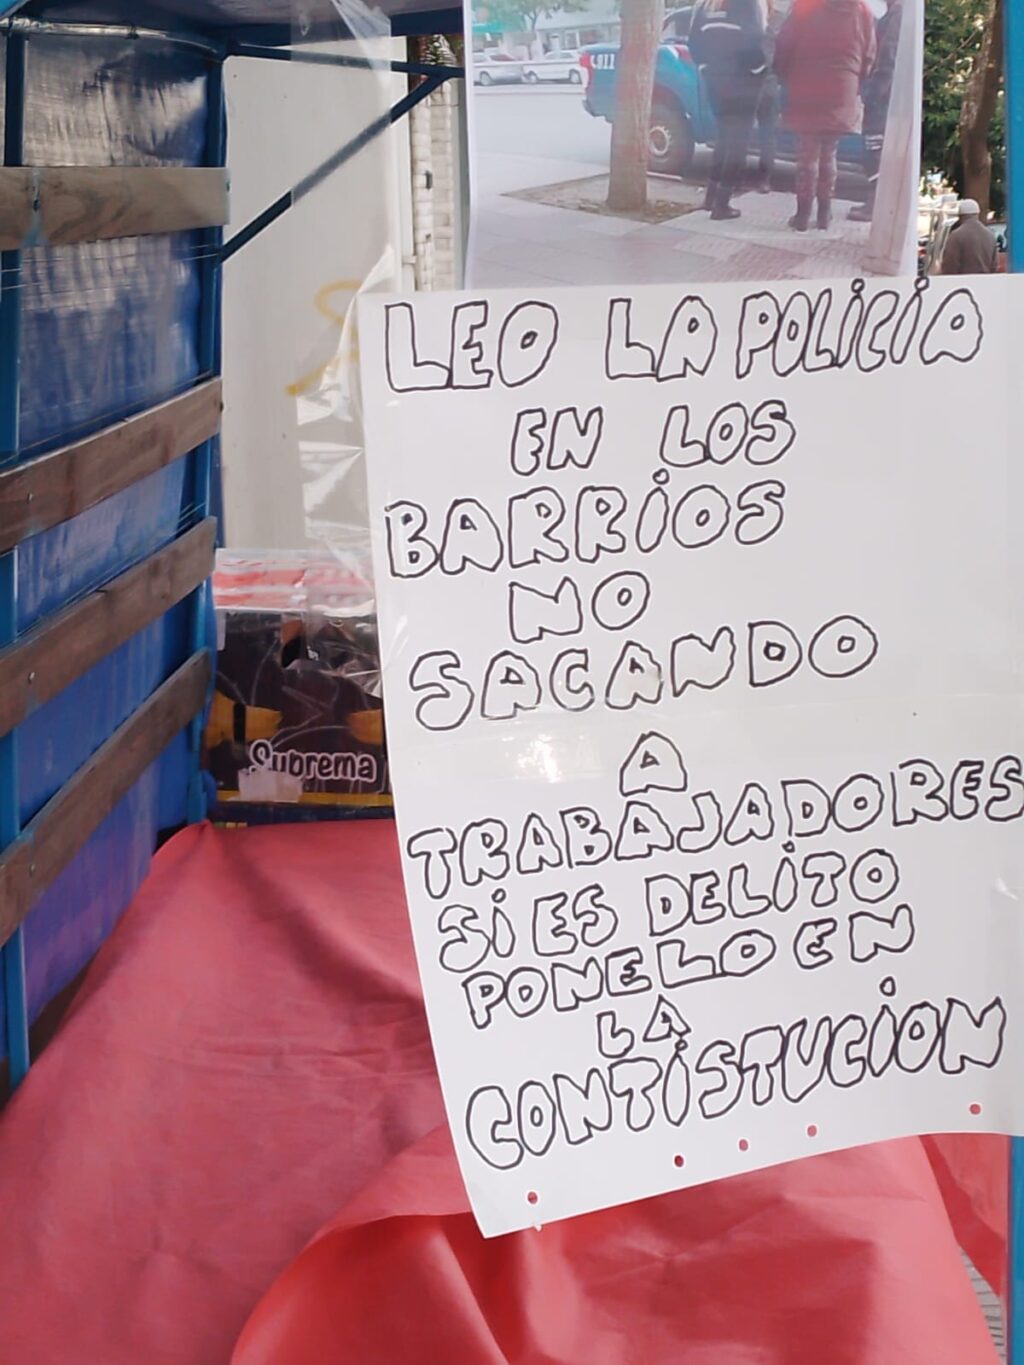 911
LEO LA POLICIA
EN LOS
BARRIOS
NO
SACANDO
A
TRABAJADORES
SI ES DELITO
PONELO EN
LA
CONTISTUCION
Suprema